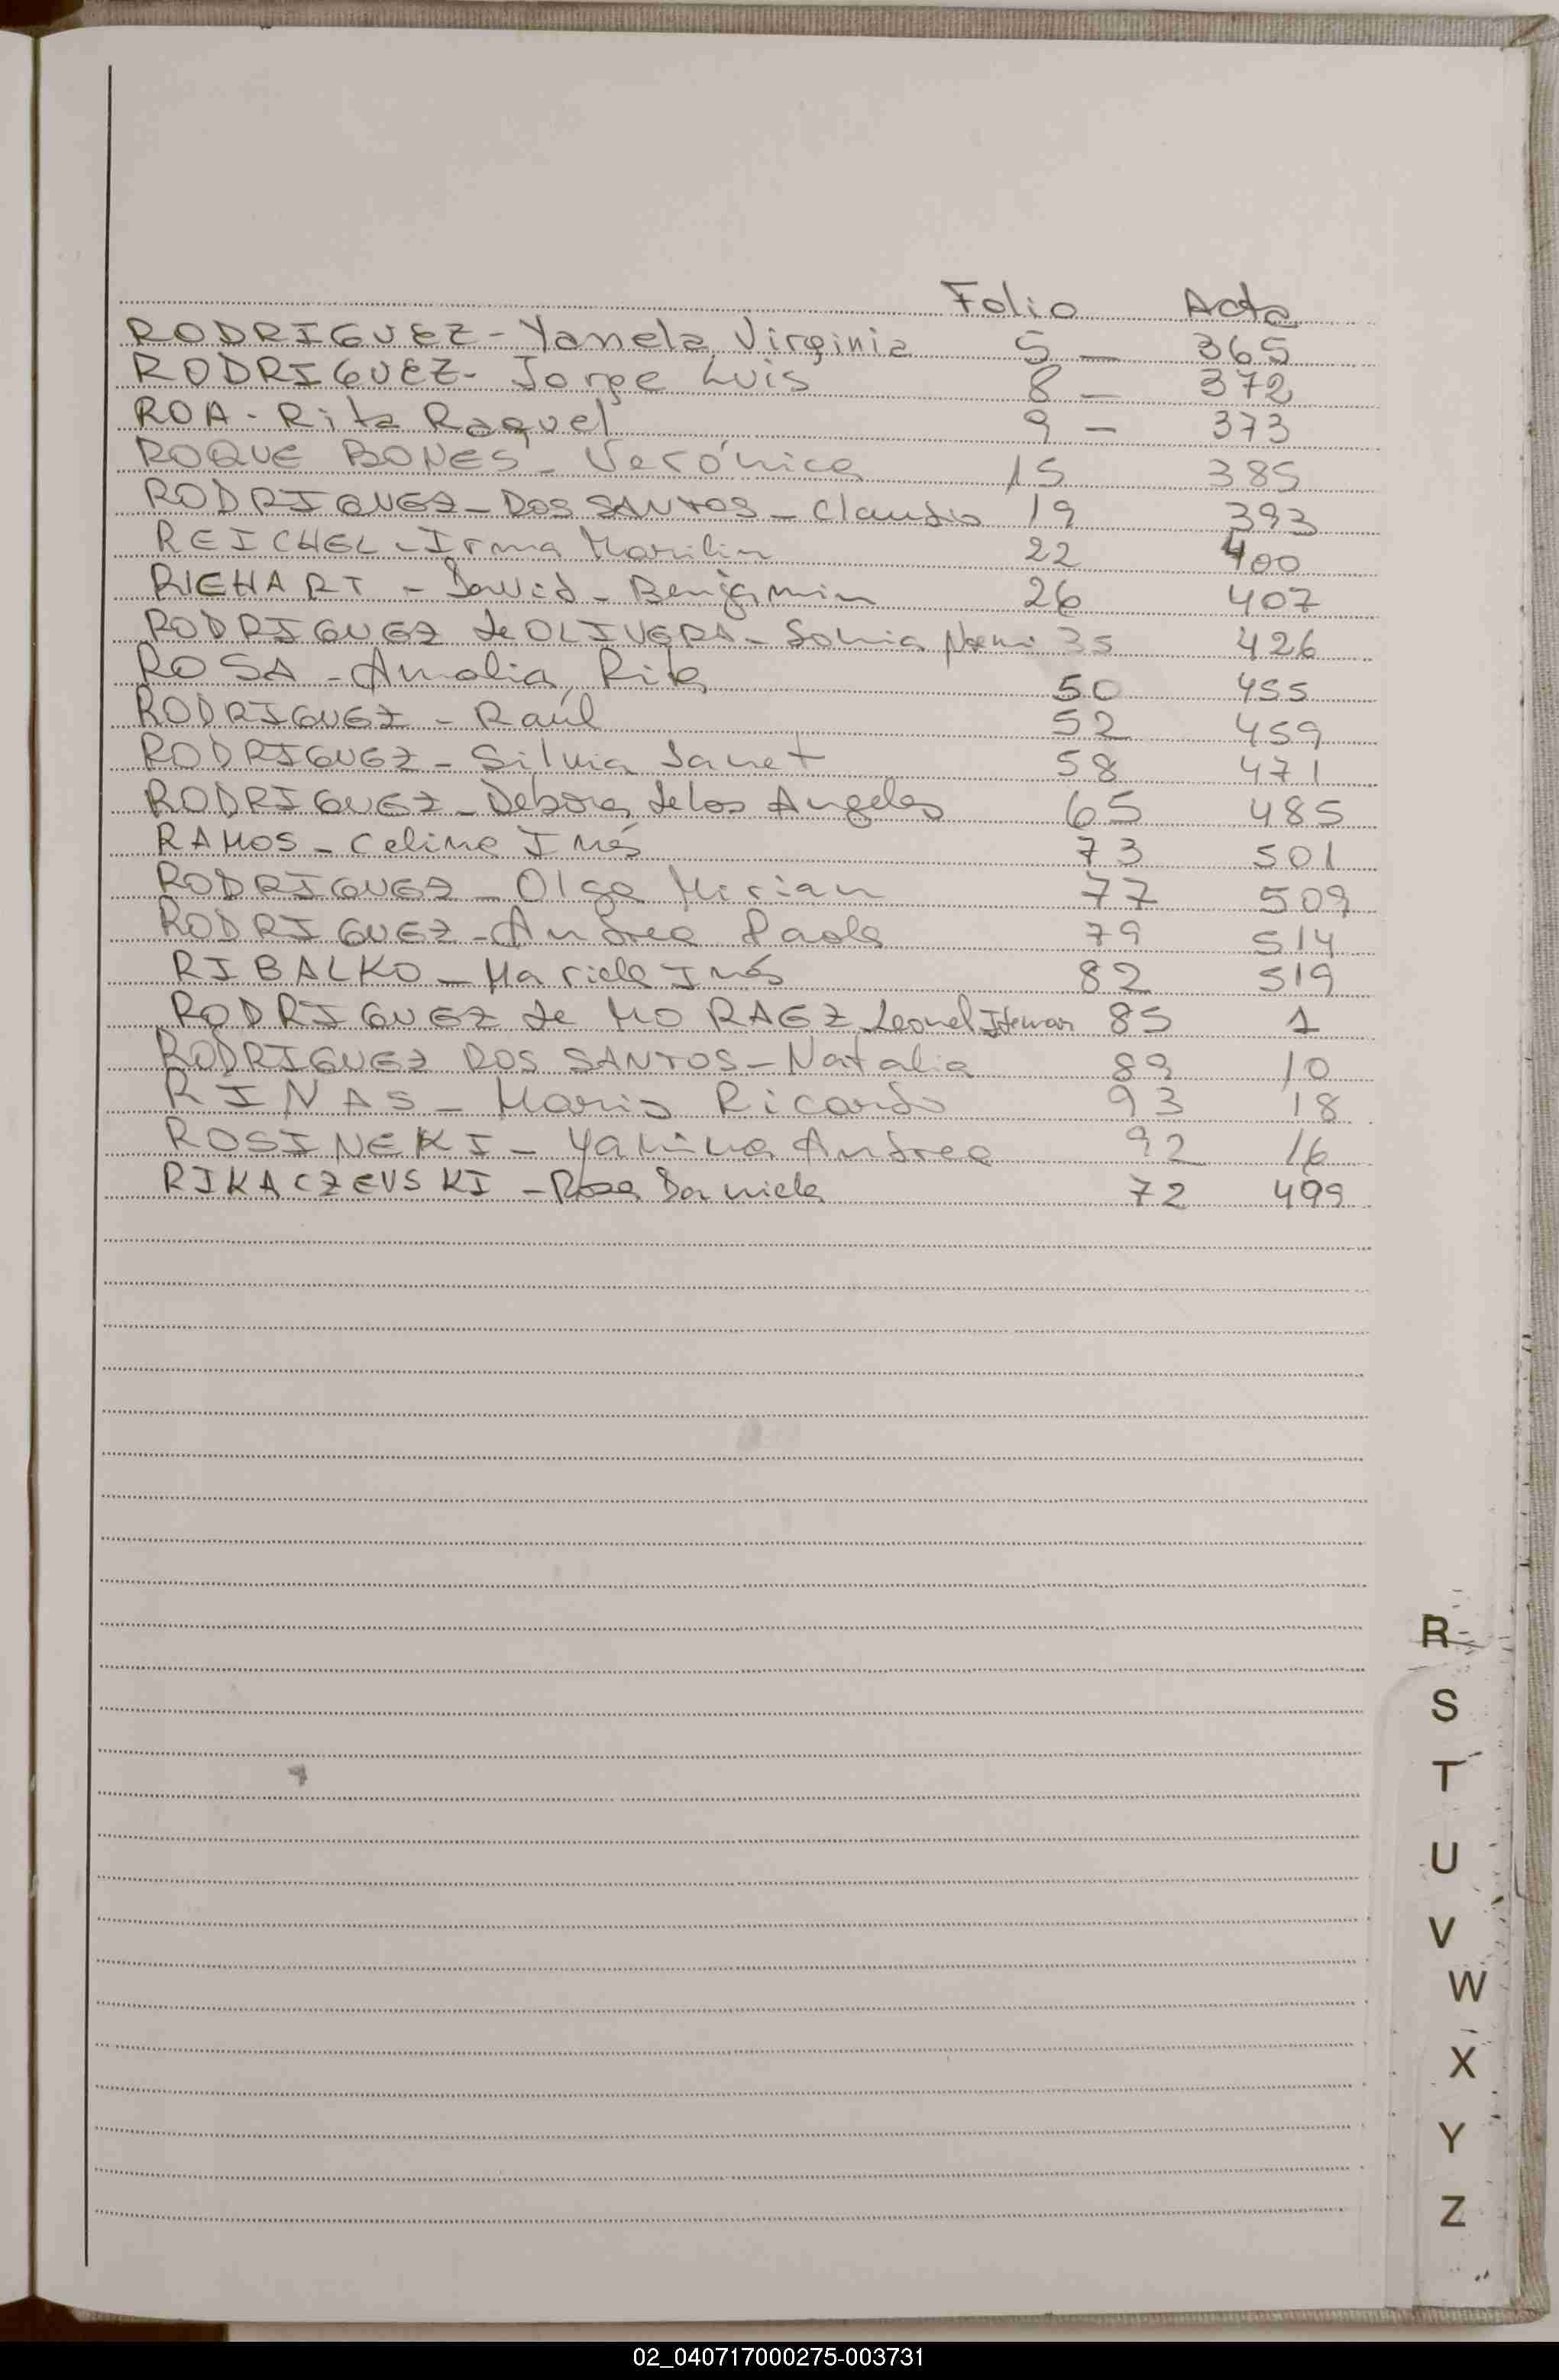 Folio Acta
RODRIGUEZ - Yanela Virginia 5 — 365
RODRIGUEZ - Jorge Luis 8 — 372
ROA - Rita Raquel 9 — 373
ROQUE BONES - Verónica 15 385
RODRIGUEZ - DOS SANTOS - Claudio 19 393
REICHEL - Irma Marilin 22 400
RIEHART - David - Benjamin 26 407
RODRIGUEZ de OLIVERA - Sonia Noemi 35 426
ROSA - Amalia Rita 50 455
RODRIGUEZ - Raúl 52 459
RODRIGUEZ - Silvia Janet 58 471
RODRIGUEZ - Debora de los Angeles 65 485
RAMOS - Celina Inés 73 501
RODRIGUEZ - Olga Mirian 77 509
RODRIGUEZ - Andrea Paola 79 514
RIBALKO - Mariela Inés 82 519
RODRIGUEZ de MORAEZ Leonel 85 1
RODRIGUEZ DOS SANTOS - Natalia 89 10
RINAS - Mario Ricardo 93 18
ROSINEKI - Yanina Andrea 92 16
RIKACZEVSKI - Rosa Daniela 72 499
R
S
T
U
V
W
X
Y
Z
02_040717000275-003731